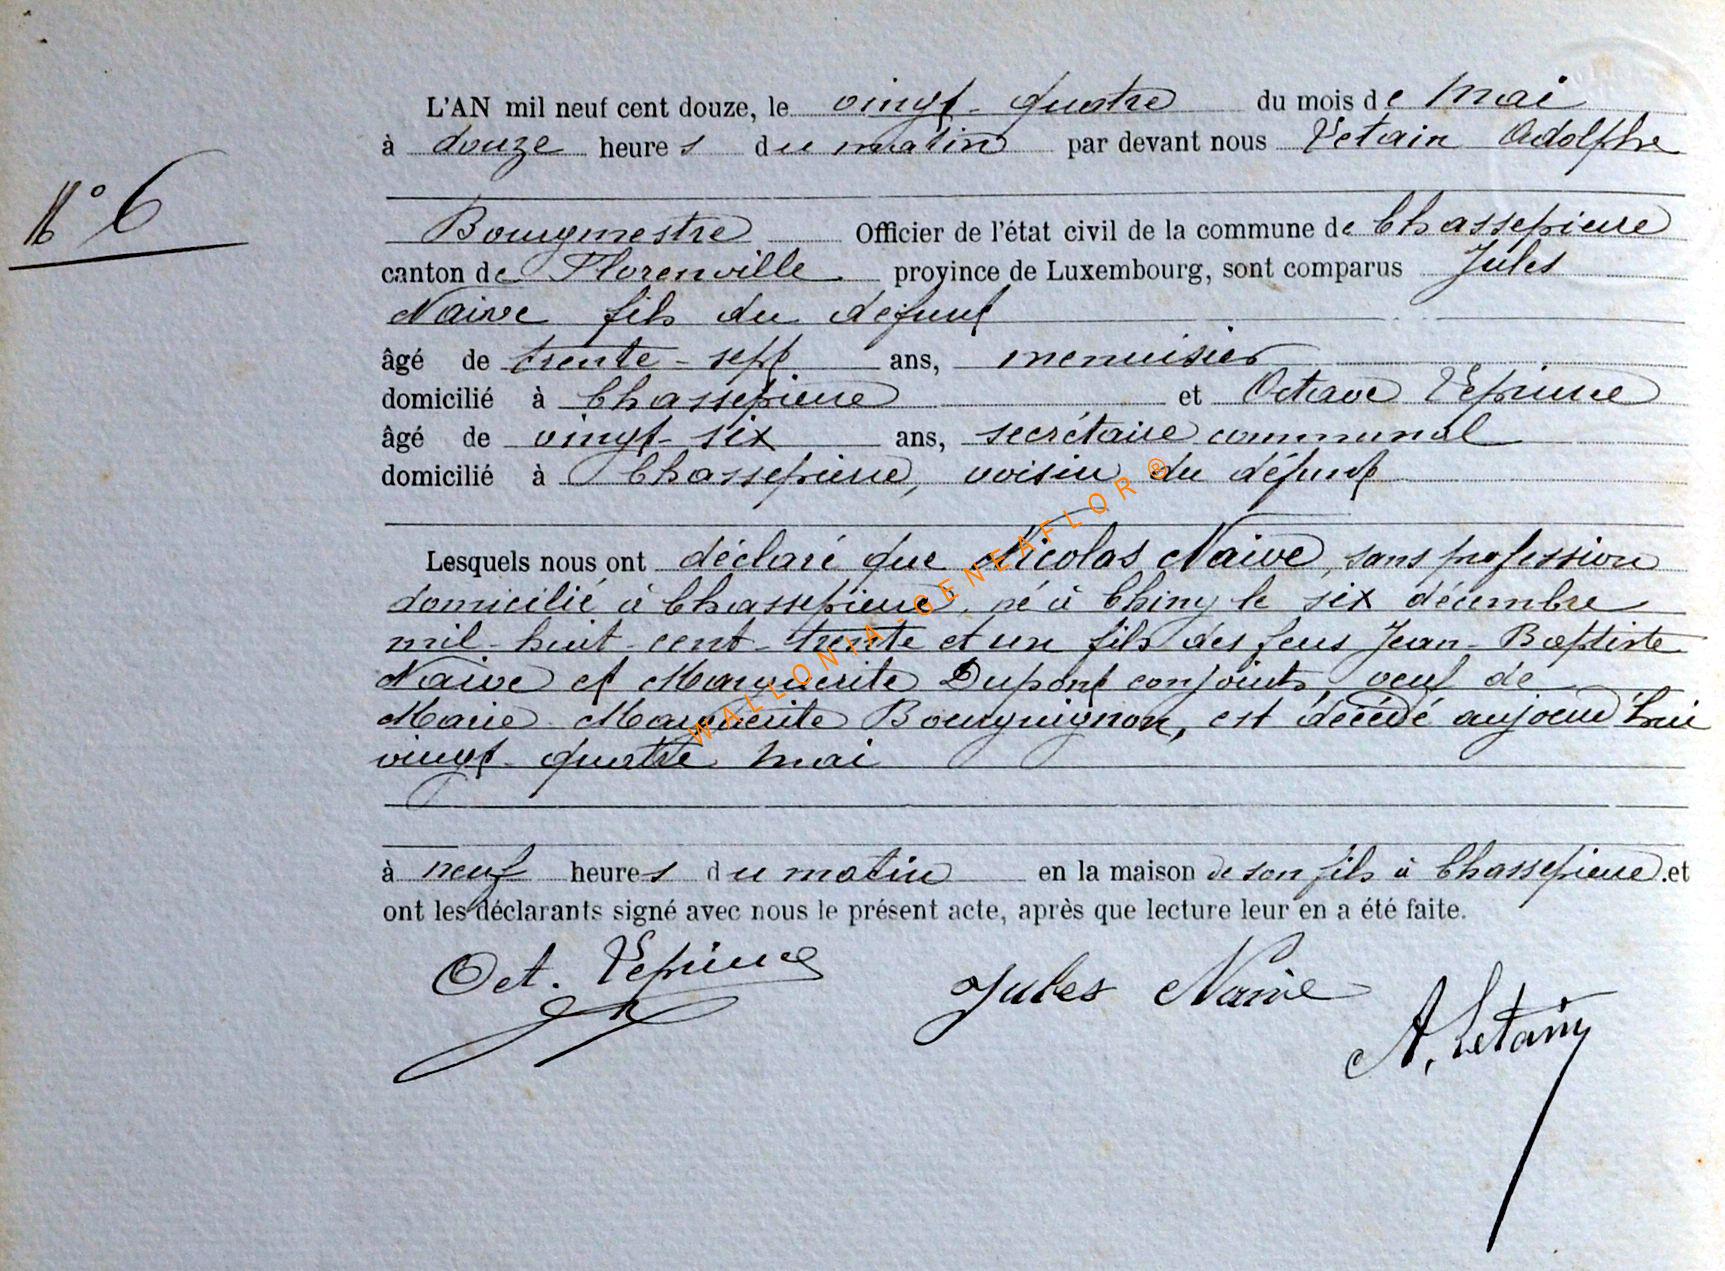 L'AN mil neuf cent douze, le vingt-quatre du mois de Mai
à douze heures du matin par devant nous Letain Adolphe
N° 6
Bourgmestre Officier de l'état civil de la commune de Chassepierre
canton de Florenville province de Luxembourg, sont comparus Jules
Naive fils du défunt
âgé de trente-sept ans, menuisier
domicilié à Chassepierre et Octave Leprince
âgé de vingt-six ans, secrétaire communal
domicilié à Chassepierre, voisin du défunt
Lesquels nous ont déclaré que Nicolas Naive, sans profession
domicilié à Chassepierre, né à Chiny le six décembre
mil-huit-cent-trente et un fils des feus Jean-Baptiste
Naive et Marguerite Dupont conjoints, veuf de
Marie-Marguerite Bourguignon, est décédé aujourd'hui
vingt-quatre mai
à neuf heures du matin en la maison de son fils à Chassepierre et
ont les déclarants signé avec nous le présent acte, après que lecture leur en a été faite.
Oct. Leprince Jules Naive A. Letain
WALLONIA-GENEAFLOR ®